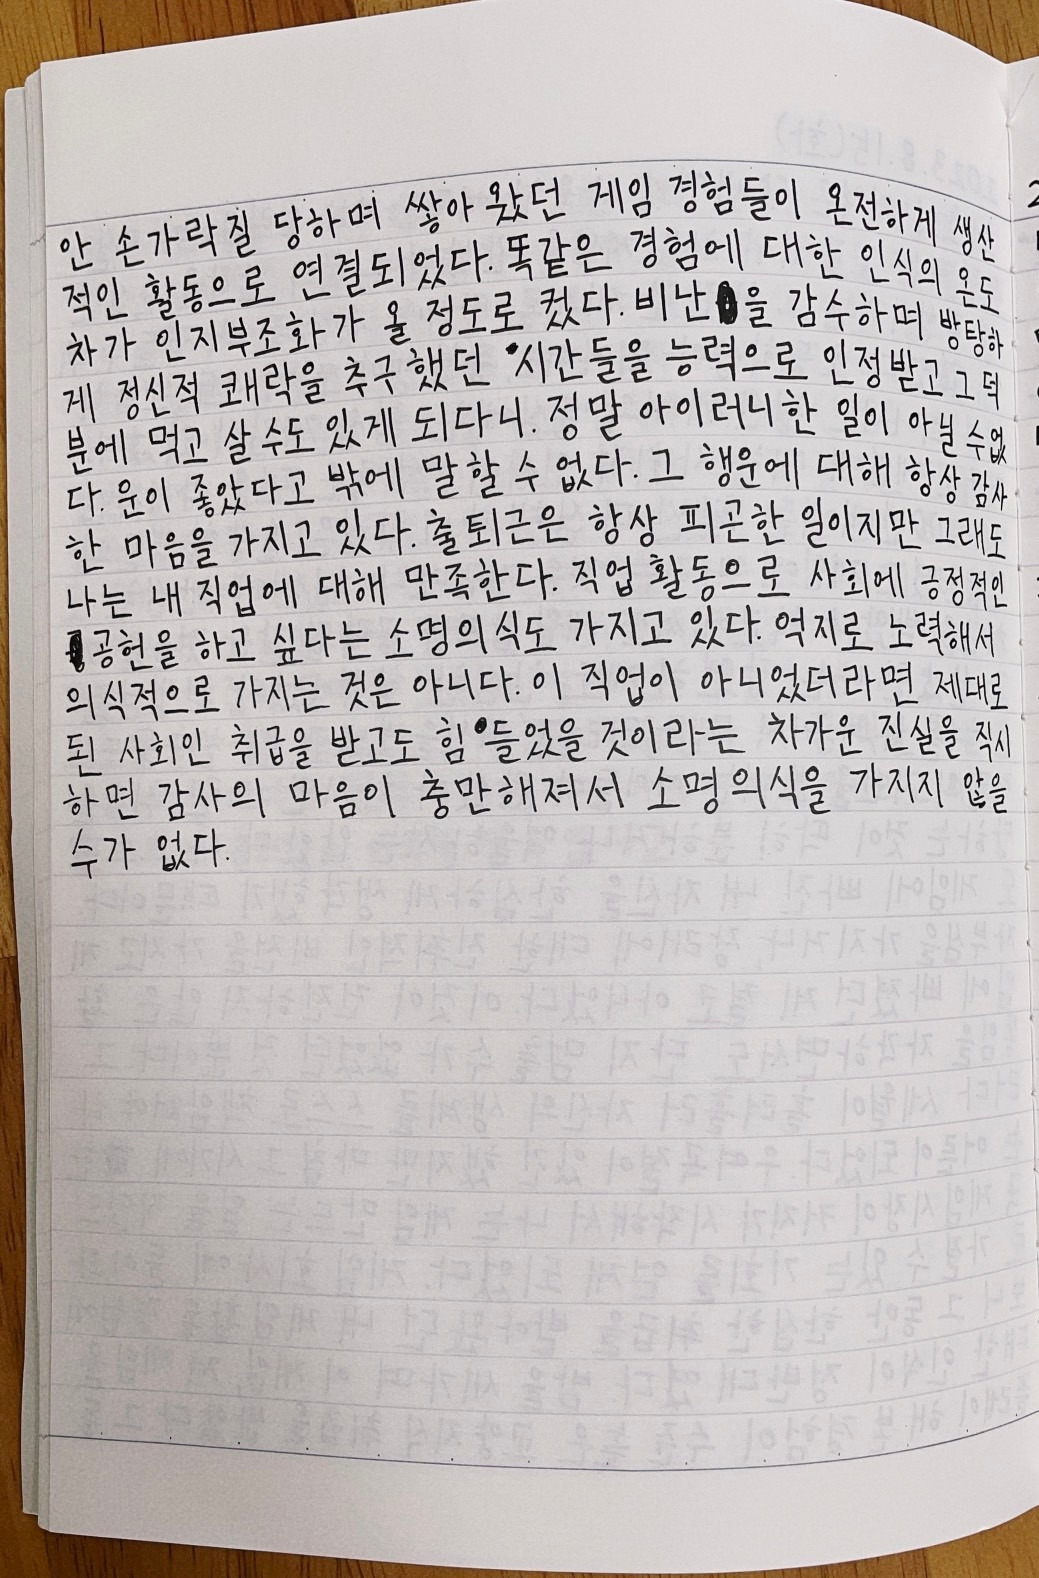 안 손가락질 당하며 쌓아 왔던 게임 경험들이 온전하게 생산
적인 활동으로 연결되었다. 똑같은 경험에 대한 인식의 온도
차가 인지부조화가 올 정도로 컸다. 비난을 감수하며 방탕하
게 정신적 쾌락을 추구했던 시간들을 능력으로 인정받고 그 덕
분에 먹고 살 수도 있게 되다니. 정말 아이러니한 일이 아닐 수 없
다. 운이 좋았다고 밖에 말할 수 없다. 그 행운에 대해 항상 감사
한 마음을 가지고 있다. 출퇴근은 항상 피곤한 일이지만 그래도
나는 내 직업에 대해 만족한다. 직업 활동으로 사회에 긍정적인
공헌을 하고 싶다는 소명의식도 가지고 있다. 억지로 노력해서
의식적으로 가지는 것은 아니다. 이 직업이 아니었더라면 제대로
된 사회인 취급을 받고도 힘들었을 것이라는 차가운 진실을 직시
하면 감사의 마음이 충만해져서 소명의식을 가지지 않을
수가 없다.